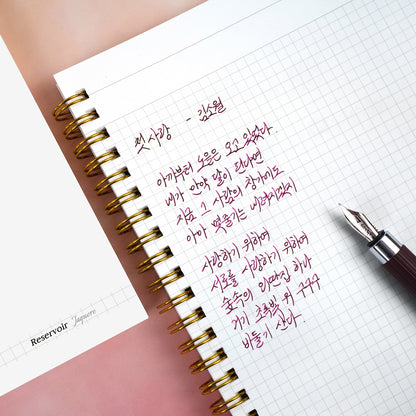 첫사랑 - 김소월
아까부터 노을은 오고 있었다.
내가 만약 달이 된다면
지금 그 사람의 창가에도
아마 몇줄기는 내려지겠지
사랑하기 위하여
서로를 사랑하기 위하여
숲속의 외딴집 하나
거기 초록빛 위 구구구
비둘기 산다.
Reservoir